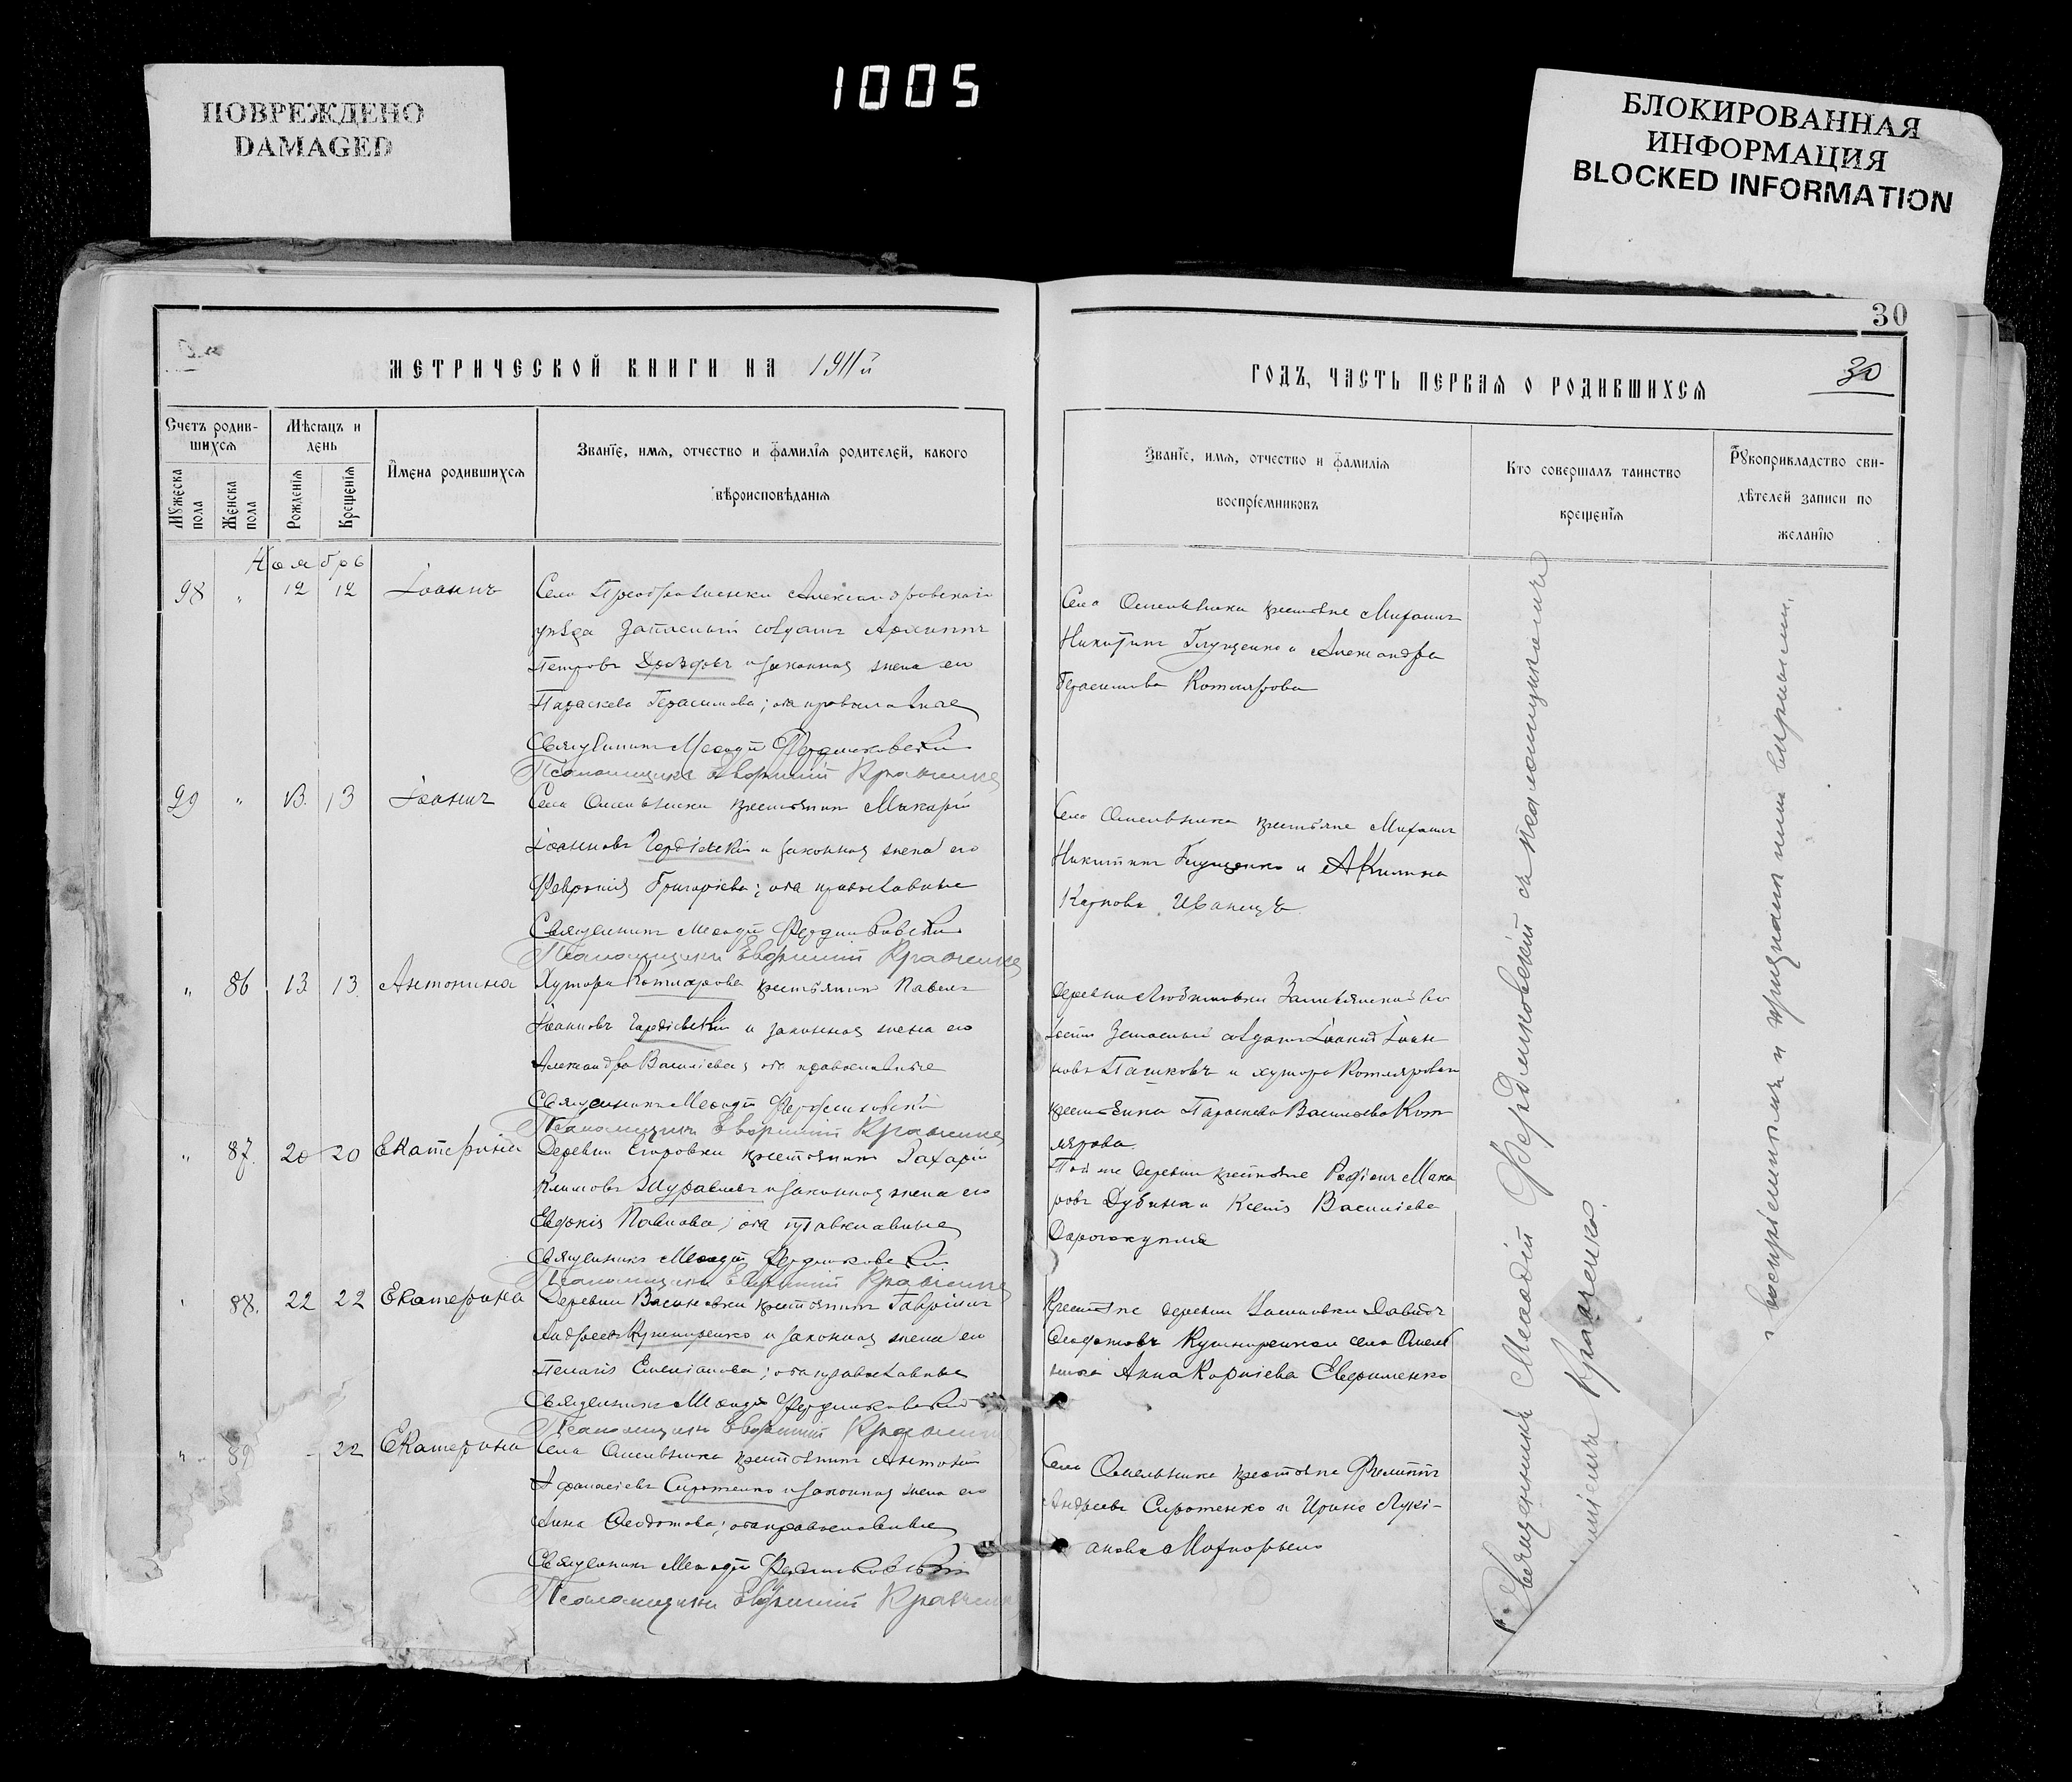 1005
ПОВРЕЖДЕНО
DAMAGED
БЛОКИРОВАННАЯ
ИНФОРМАЦИЯ
BLOCKED INFORMATION
30
МЕТРИЧЕСКОЙ КНИГИ НА 1911й
ГОДЪ, ЧАСТЬ ПЕРВАЯ О РОДИВШИХСЯ
30
Счетъ родившихся
Мужеска пола
Женска пола
Мѣсяцъ и день
Рожденія
Крещенія
Имена родившихся
Званіе, имя, отчество и фамилія родителей, какого
вѣроисповѣданія
Званіе, имя, отчество и фамилія
воспріемниковъ
Кто совершалъ таинство
крещенія
Рукоприкладство сви-
дѣтелей записи по
желанію
Ноябрь
98 " 12 12 Іоаннъ
Села Преображенки Александровскаго
уѣзда запасный солдатъ Архиппъ
Петровъ Дроздовъ и законная жена его
Параскева Герасимова; оба православные
Священникъ Меѳодій Фердинковскій
Псаломщикъ Евфимій Кравченко
Села Омельника крестьяне Михаилъ
Никитинъ Глущенко и Александра
Герасимова Котлярова
99 " 13 13 Іоаннъ
Села Омельника крестьянинъ Макарій
Іоанновъ Гордіевскій и законная жена его
Февронія Григоріева; оба православные
Священникъ Меѳодій Фердинковскій
Псаломщикъ Евфимій Кравченко
Село Омельника крестьяне Михаилъ
Никитинъ Глущенко и Акилина
Карпова Иванецъ
" 86 13 13 Антонина
Хутора Котлярова крестьянинъ Павелъ
Іоанновъ Гордіевскій и законная жена его
Александра Васильева; оба православные
Священникъ Меѳодій Фердинковскій
Псаломщикъ Евфимій Кравченко
Деревни Любимовки во-
лости запасный солдатъ Іоаннъ Іоан-
новъ Пашковъ и хутора Котлярова
крестьянка Параскева Васильева Кот-
лярова
" 87. 20 20 Екатерина
Деревни Егоровки крестьянинъ Захарій
Климовъ Журавлевъ и законная жена его
Евдокія Павлова; оба православные
Священникъ Меѳодій Фердинковскій
Псаломщикъ Евфимій Кравченко
Той же деревни крестьяне Родіонъ Мака-
ровъ Дубина и Ксенія Васильева
" 88. 22 22 Екатерина
Деревни Васиновки крестьянинъ Гавріилъ
Андреевъ Кушниренко и законная жена его
Пелагія Емеліанова; оба православные
Священникъ Меѳодій Фердинковскій
Псаломщикъ Евфимій Кравченко
Крестьяне деревни Давидъ
Ѳедотовъ Кушниренко и села Омель-
ника Анна Корніева Евфименко
" 89 22 Екатерина
Села Омельника крестьянинъ Антоній
Афанасіевъ Сиротенко и законная жена его
Анна Ѳедотова; оба православные
Священникъ Меѳодій Фердинковскій
Псаломщикъ Евфимій Кравченко
Села Омельника крестьяне Филиппъ
Андреевъ Сиротенко и Ирина Лукі-
анова
Священникъ Меѳодій Фердинковскій съ псаломщикомъ
Кравченко.